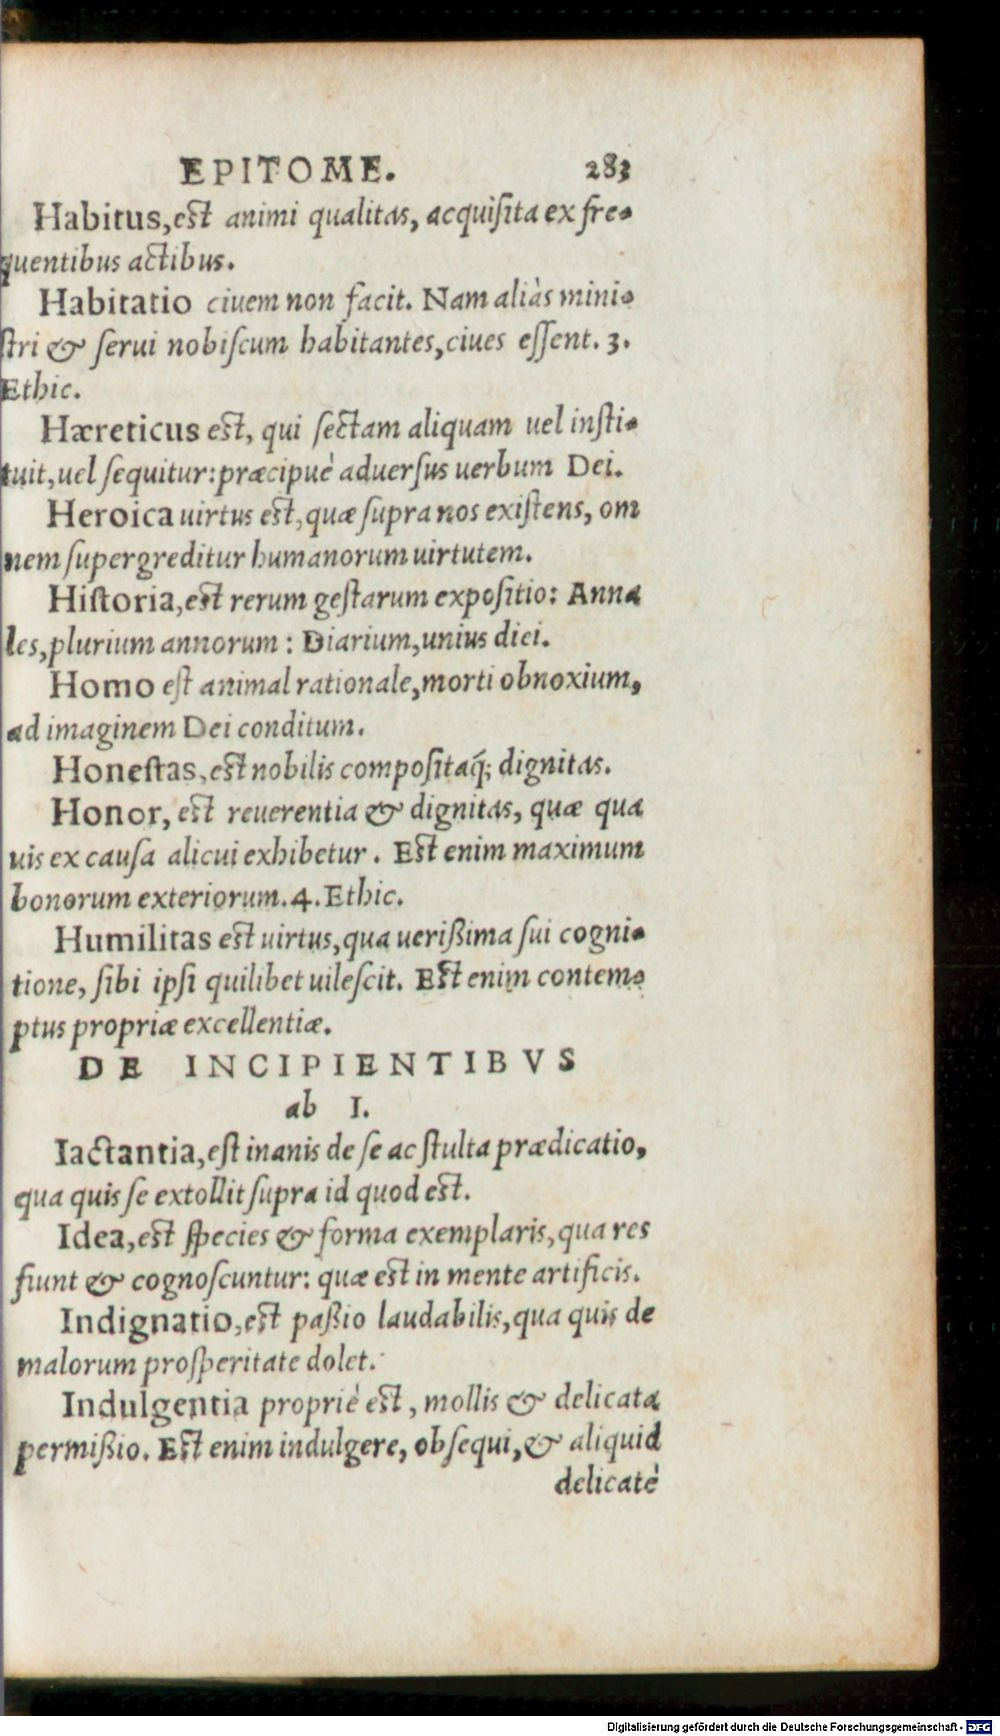 EPITOME. 283
Habitus, est animi qualitas, acquisita ex fre-
quentibus actibus.
Habitatio ciuem non facit. Nam aliàs mini-
stri & serui nobiscum habitantes, ciues essent. 3.
Ethic.
Hæreticus est, qui sectam aliquam uel insti-
tuit, uel sequitur: præcipuè aduersus uerbum Dei.
Heroica uirtus est, quæ supra nos existens, om
nem supergreditur humanorum uirtutem.
Historia, est rerum gestarum expositio: Anna
les, plurium annorum: Diarium, unius diei.
Homo est animal rationale, morti obnoxium,
ad imaginem Dei conditum.
Honestas, est nobilis compositaq́; dignitas.
Honor, est reuerentia & dignitas, quæ qua
uis ex causa alicui exhibetur. Est enim maximum
bonorum exteriorum. 4. Ethic.
Humilitas est uirtus, qua uerißima sui cogni-
tione, sibi ipsi quilibet uilescit. Est enim contem-
ptus propriæ excellentiæ.
DE INCIPIENTIBVS
ab I.
Iactantia, est inanis de se ac stulta prædicatio,
qua quis se extollit supra id quod est.
Idea, est species & forma exemplaris, qua res
fiunt & cognoscuntur: quæ est in mente artificis.
Indignatio, est paßio laudabilis, qua quis de
malorum prosperitate dolet.
Indulgentia propriè est, mollis & delicata
permißio. Est enim indulgere, obsequi, & aliquid
delicatè
Digitalisierung gefördert durch die Deutsche Forschungsgemeinschaft - DFG